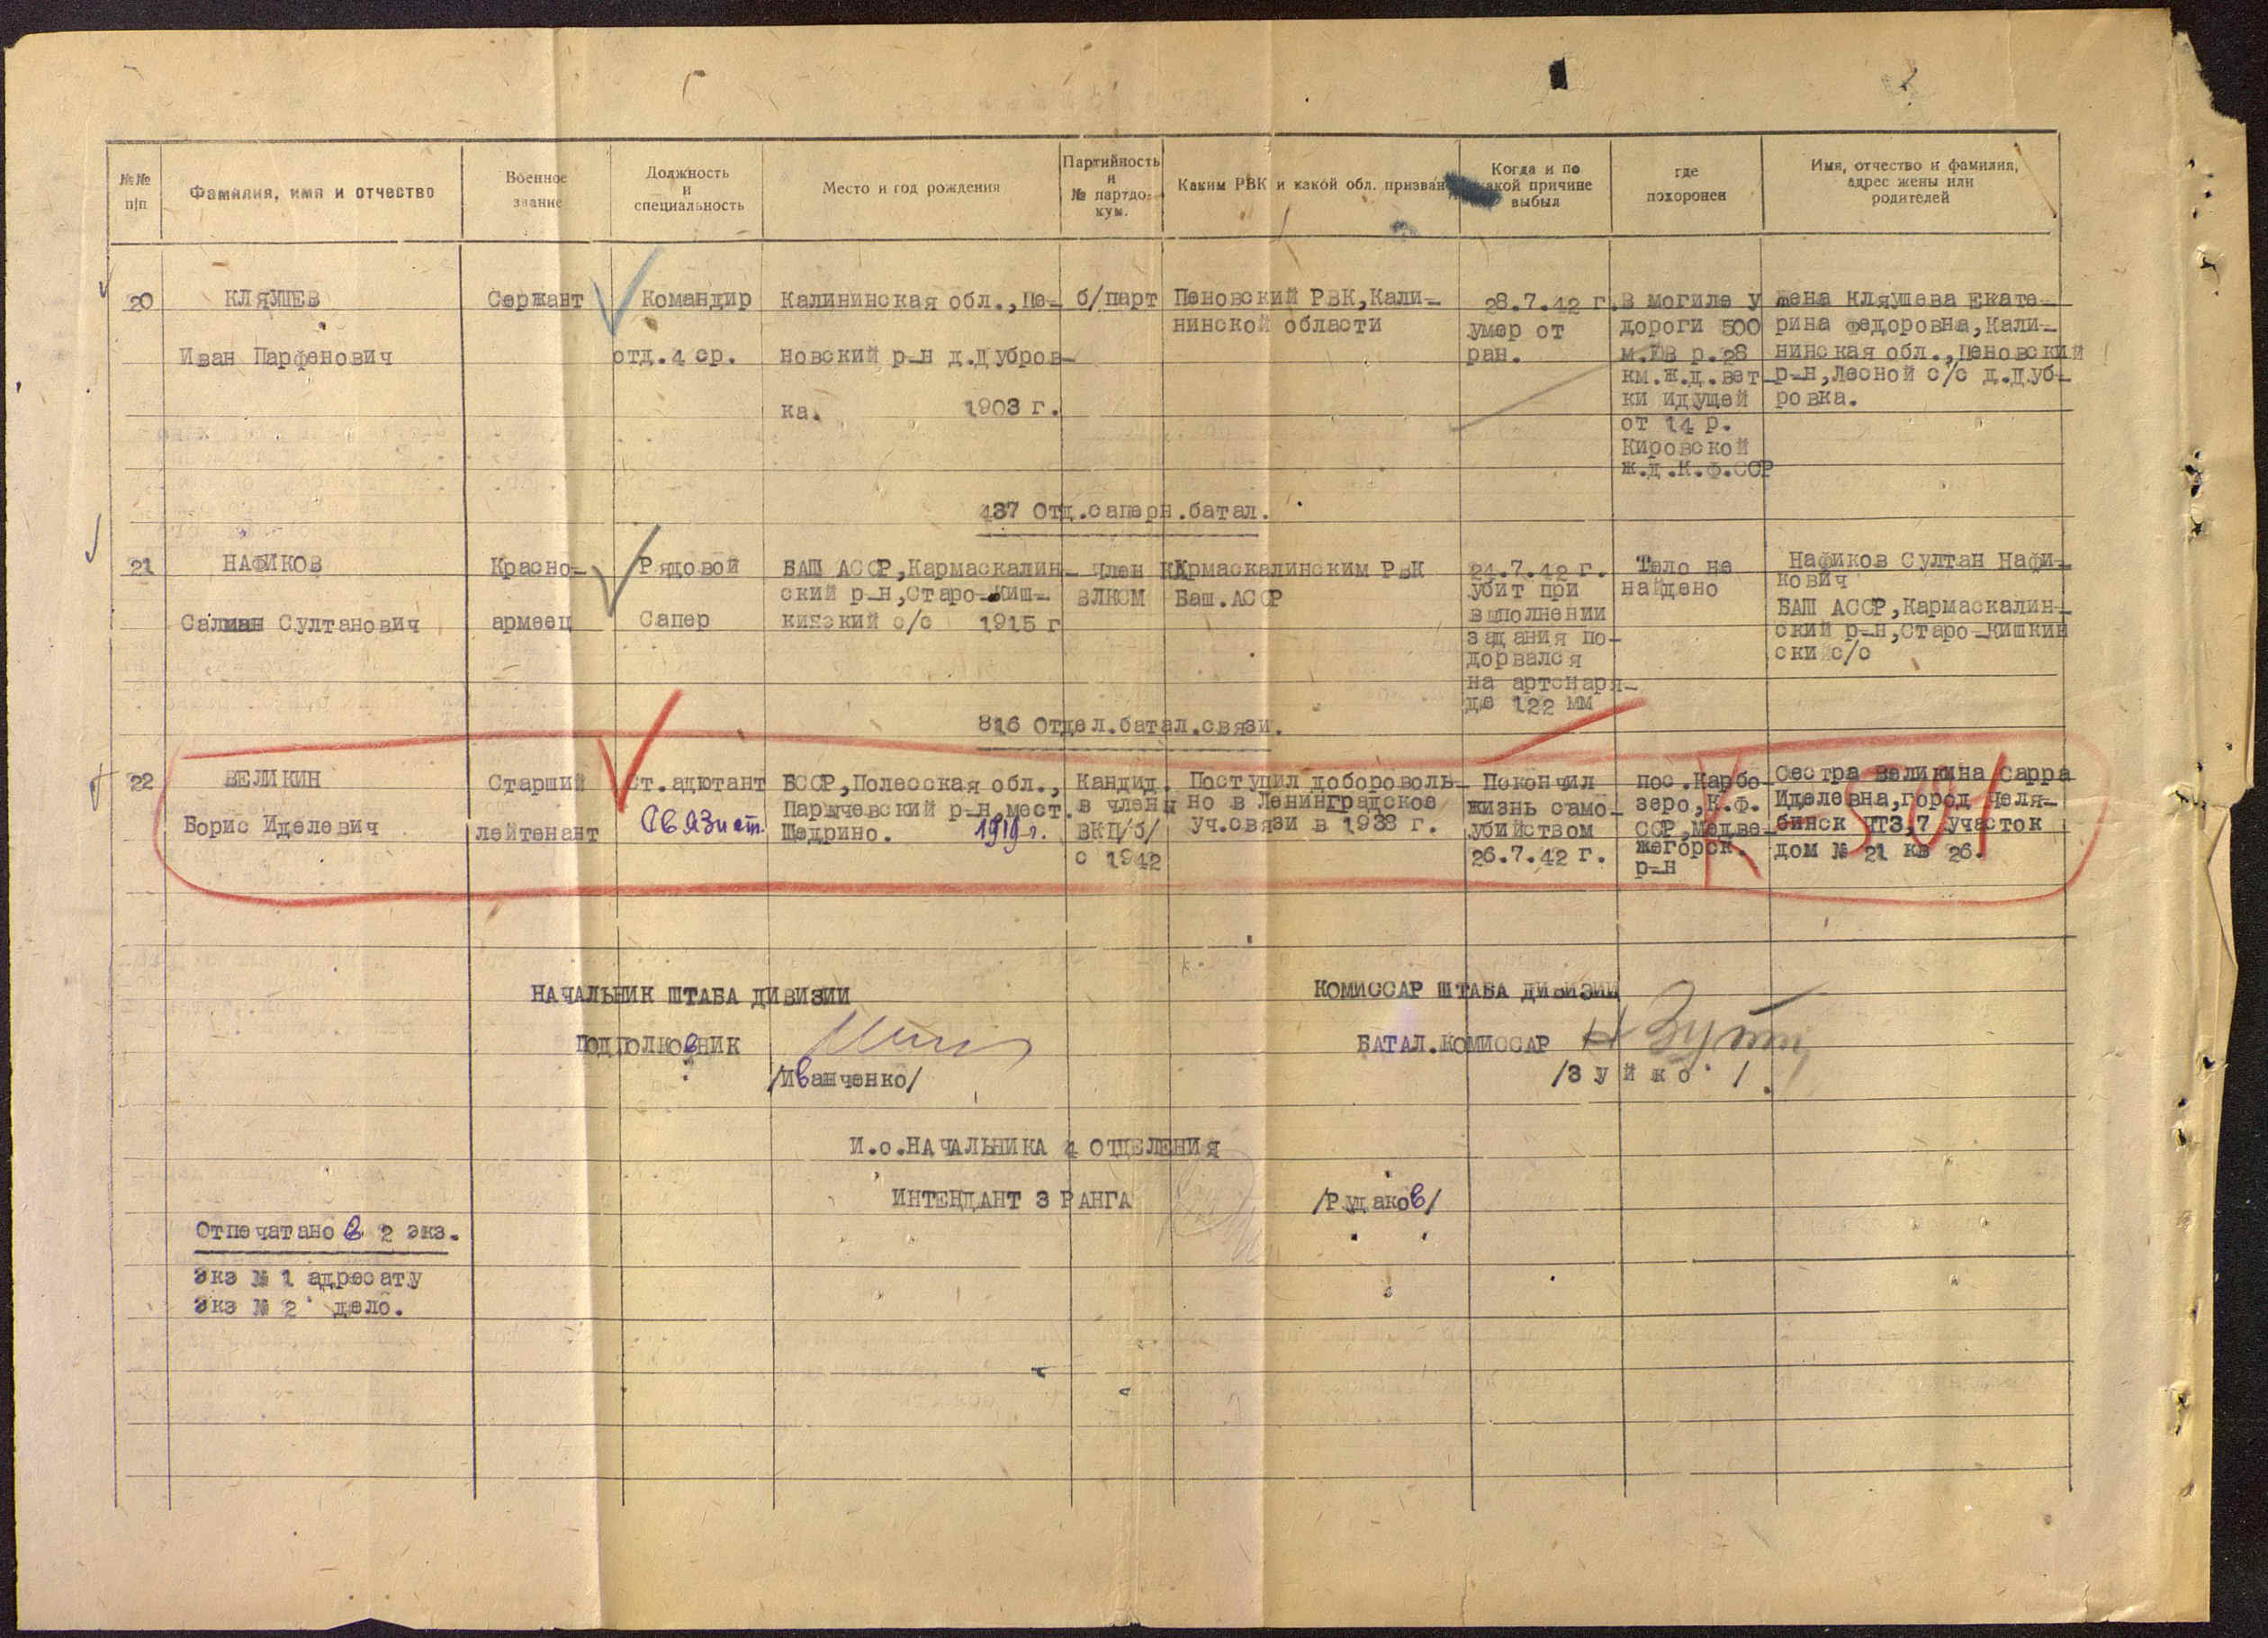 №№ п|п
Фамилия, имя и отчество
Военное звание
Должность и специальность
Место и год рождения
Партийность и № партдокум.
Каким РВК и какой обл. призван
Когда и по какой причине выбыл
где похоронен
Имя, отчество и фамилия, адрес жены или родителей
20
КЛЯУШЕВ
Иван Парфенович
Сержант
Командир
отд. 4 ср.
Калининская обл., Пе-
новский р-н д.Дубров-
ка. 1903 г.
б/парт
Пеновский РВК, Кали-
нинской области
28.7.42 г.
умер от
ран.
В могиле у
дороги 500
м.ЮВ р.28
км.ж.д.вет-
ки идущей
от 14 р.
Кировской
ж.д.К.Ф.ССР
жена Кляушева Екате-
рина Федоровна, Кали-
нинская обл., Пеновский
р-н, Лесной с/с д.Дуб-
ровка.
437 Отд.саперн.батал.
21
НАФИКОВ
Салман Султанович
Красно-
армеец
Рядовой
Сапер
БАШ АССР, Кармаскалин-
ский р-н, Старо-Киш-
кинский с/с 1915 г
член
ВЛКСМ
Кармаскалинским РВК
Баш.АССР
24.7.42 г.
убит при
выполнении
задания по-
дорвался
на артснаря-
де 122 мм
Тело не
найдено
Нафиков Султан Нафи-
кович
БАШ АССР, Кармаскалин-
ский р-н, Старо-Кишкин
ский с/с
816 Отдел.батал.связи.
22
ВЕЛИКИН
Борис Иделевич
Старший
лейтенант
ст.адютант
Связист.
БССР, Полесская обл.,
Паричевский р-н, мест.
Щедрино. 1919 г.
Кандид.
в члены
ВКП/б/
с 1942
Поступил доброволь-
но в Ленинградское
уч.связи в 1938 г.
Покончил
жизнь само-
убийством
26.7.42 г.
пос.Карбо-
зеро, К.Ф.
ССР, Медве-
жегорск.
р-н
Сестра Великина Сарра
Иделевна, город Челя-
бинск ЧТЗ, 7 участок
дом № 21 кв 26.
НАЧАЛЬНИК ШТАБА ДИВИЗИИ
ПОДПОЛКОВНИК
/Иванченко/
КОМИССАР ШТАБА ДИВИЗИИ
БАТАЛ.КОМИССАР
/Зуйко/.
И.о.НАЧАЛЬНИКА 4 ОТДЕЛЕНИЯ
ИНТЕНДАНТ 3 РАНГА /Рудаков/
Отпечатано в 2 экз.
Экз № 1 адресату
Экз № 2 дело.